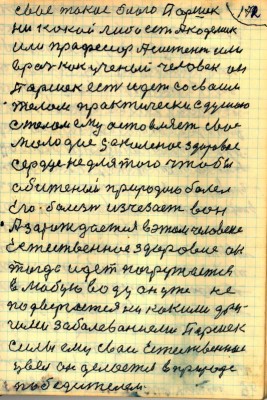 172
свое такое благо Паршек
ни какой либо есть Академик
или профессор Асистент или
врач как ученый человек он
Паршек есть идет со своим
телом практически с душою
с телом ему оставляет свое
молодие закаленое здоровое
сердце не для того чтобы
обитеный природою болел
Его болезн изчезает вон
А зарождается в этом человеке
Естественное здоровие он
тогда идет погружается
в любую воду он уже не
подвергается ни какими дру
гими заболеваниеми Паршек
силы ему сваи Естественые
увел он делается в природе
победителем